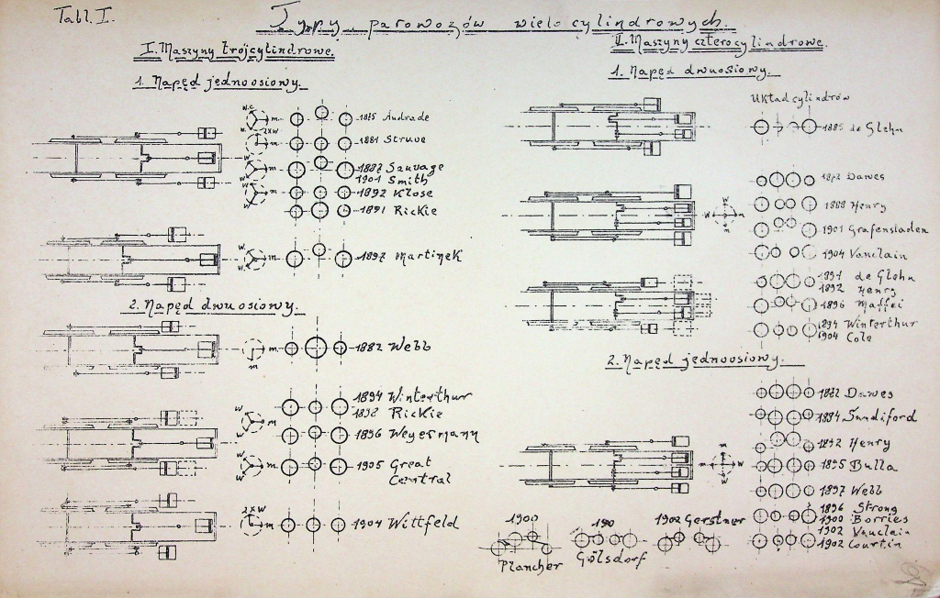 Tabl. I.
Typy parowozów wielocylindrowych.
I. Maszyny trójcylindrowe.
1. Napęd jednoosiowy.
Andrade
1881 Struve
1887 Sauvage
1901 Smith
1892 Klose
1891 Rickie
1897 Martinek
2. Napęd dwuosiowy.
1882 Webb
1894 Winterthur
1898 Rickie
1896 Weyermann
1905 Great
Central
1904 Wittfeld
II. Maszyny czterocylindrowe.
1. Napęd dwuosiowy.
Układ cylindrów
1885 de Glehn
1872 Dawes
1888 Henry
1901 Grafenstaden
1904 Vauclain
1891 de Glehn
1892 Henry
1896 Maffei
1894 Winterthur
1904 Cole
2. Napęd jednoosiowy.
1872 Dawes
1894 Sandiford
1892 Henry
1895 Bulla
1897 Webb
1896 Strong
1900 Borries
1902 Vauclain
1902 Courtin
1900
Plancher
190
Gölsdorf
1902 Gerstner